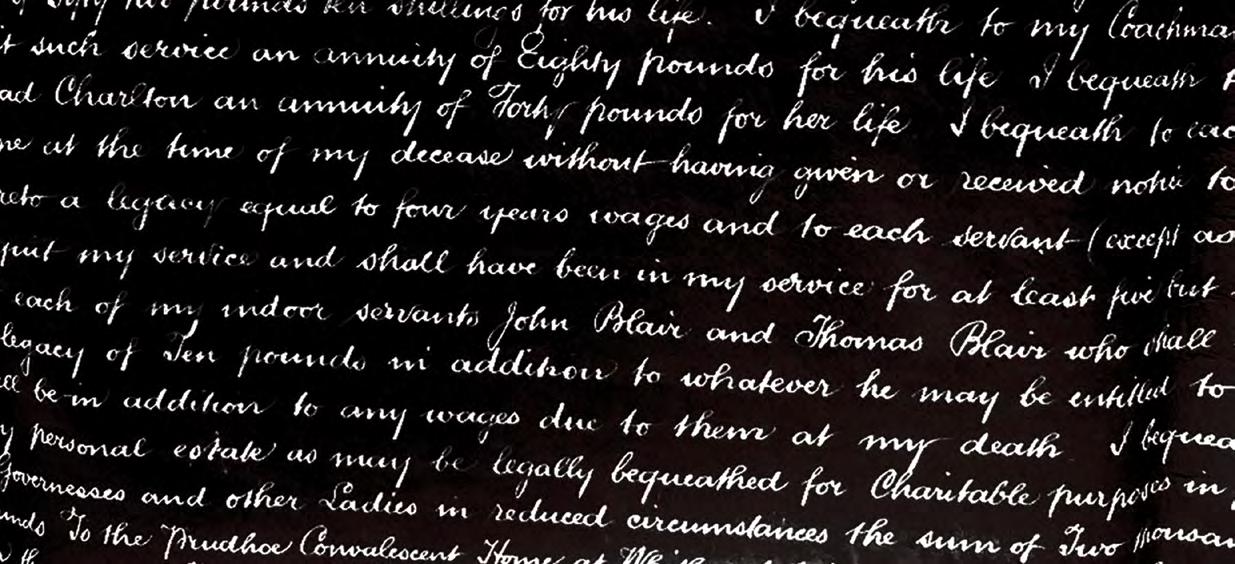 two pounds ten shillings for his life. I bequeath to my Coachma
t such service an annuity of Eighty pounds for his life I bequeath
ad Charlton an annuity of Forty pounds for her life I bequeath to eac
me at the time of my decease without having given or received notice to
reto a legacy equal to four years wages and to each servant (except as
quit my service and shall have been in my service for at least five but
each of my indoor servants John Blair and Thomas Blair who shall
legacy of Ten pounds in addition to whatever he may be entitled to
ll be in addition to any wages due to them at my death I bequea
y personal estate as may be legally bequeathed for Charitable purposes in
Governesses and other Ladies in reduced circumstances the sum of Two thousan
unds To the Prudhoe Convalescent Home at